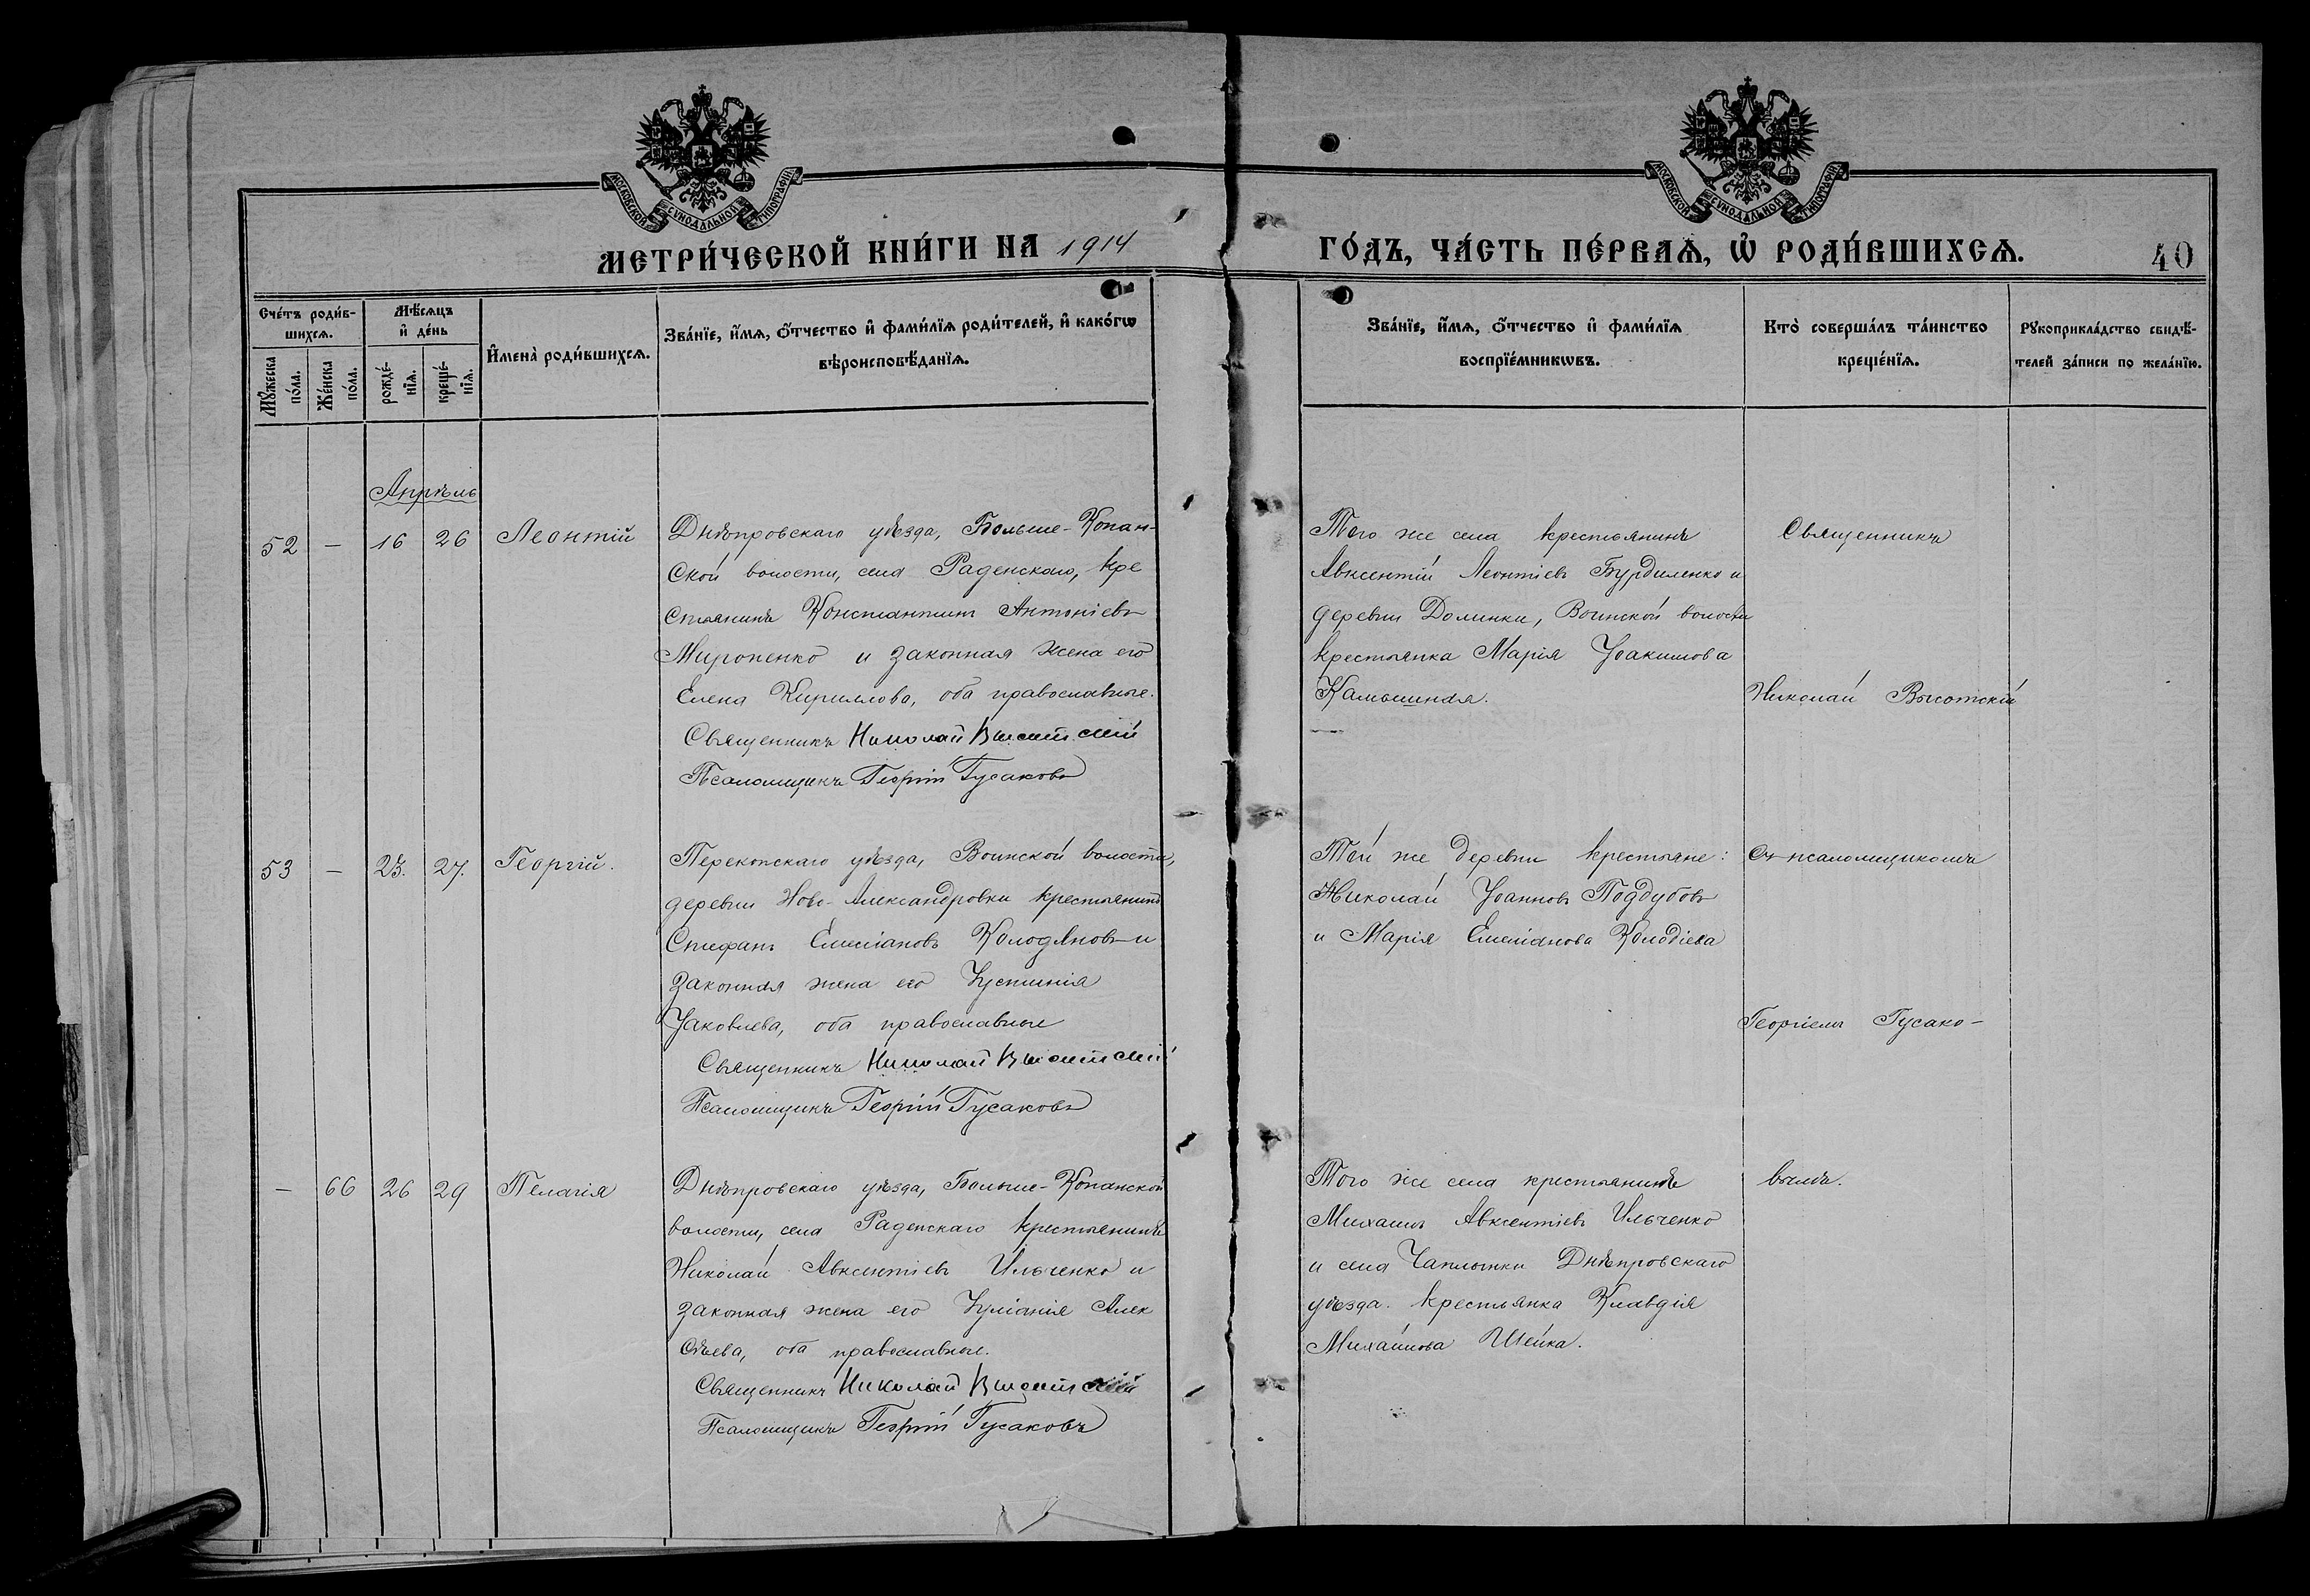 МОСКОВСКОЙ СѴНОДАЛЬНОЙ ТИПОГРАФІИ
МОСКОВСКОЙ СѴНОДАЛЬНОЙ ТИПОГРАФІИ
МЕТРИ́ЧЕСКОЙ КНИ́ГИ НА 1914
ГО́ДЪ, ЧА́СТЬ ПЕ́РВАѦ, Ѡ҆ РОДИ́ВШИХСѦ.
40
Сче́тъ роди́в-
шихсѧ.
Мꙋ́жеска
по́ла.
Же́нска
по́ла.
Мѣ́сѧцъ
и҆ де́нь
рожде́-
нїѧ.
креще́-
нїѧ.
И҆мена̀ роди́вшихсѧ.
Зва́нїе, и҆́мѧ, о҆́тчество и҆ фами́лїѧ роди́телей, и҆ како́гѡ
вѣроисповѣ́данїѧ.
Зва́нїе, и҆́мѧ, о҆́тчество и҆ фами́лїѧ
воспрїе́мникѡвъ.
Кто̀ соверша́лъ та́инство
креще́нїѧ.
Рꙋкоприкла́дство свидѣ́-
телей за́писи по жела́нїю.
Апрѣль
52 — 16 26 Леонтій
Днѣпровскаго уѣзда, Больше-Копан-
ской волости, села Раденскаго, кре
стьянинъ Константинъ Антоніевъ
Мироненко и законная жена его
Елена Кириллова, оба православные.
Священникъ Николай Высотскій
Псаломщикъ Георгій Гусаковъ
Того же села крестьянинъ
Авксентій Леонтіевъ Бурдиленко и
деревни Долинки, Воинской волости
крестьянка Марія Іоакимова
Камышная.
Священникъ
Николай Высотскій
53 — 23. 27. Георгій.
Перекопскаго уѣзда, Воинской волости,
деревни Ново-Александровки крестьянинъ
Стефанъ Емеліановъ Колодяновъ и
законная жена его Іустинія
Іаковлева, оба православные
Священникъ Николай Высотскій
Псаломщикъ Георгій Гусаковъ
Той же деревни крестьяне:
Николай Іоанновъ Поддубовъ
и Марія Емеліанова Колодіева
Съ псаломщикомъ
Георгіемъ Гусако-
— 66 26 29 Пелагія
Днѣпровскаго уѣзда, Больше-Копанской
волости, села Раденскаго крестьянинъ
Николай Авксентіевъ Ильченко и
законная жена его Іуліанія Алек
сѣева, оба православные.
Священникъ Николай Высотскій
Псаломщикъ Георгій Гусаковъ
Того же села крестьянинъ
Михаилъ Авксентіевъ Ильченко
и села Чаплынки Днѣпровскаго
уѣзда. крестьянка Клавдія
Михайлова Шейка.
вымъ.